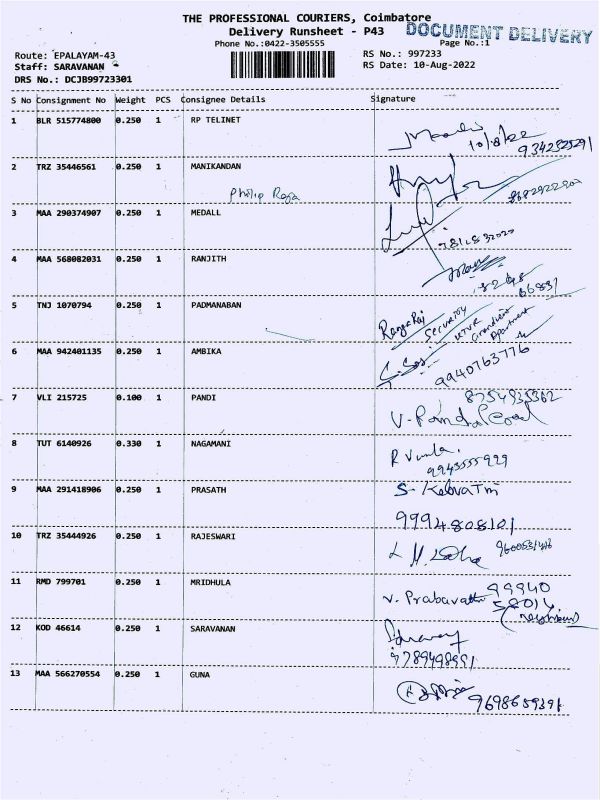 THE PROFESSIONAL COURIERS, Coimbatore
DOCUMENT DELIVERY
Delivery Runsheet - P43
Phone No.:0422-3505555
Page No.:1
Route: EPALAYAM-43
RS No.: 997233
Staff: SARAVANAN
RS Date: 10-Aug-2022
DRS No.: DCJB99723301
S No Consignment No Weight PCS Consignee Details Signature
1 BLR 515774800 0.250 1 RP TELINET
10/8/22 9342325291
2 TRZ 35446561 0.250 1 MANIKANDAN
Philip Raja
3 MAA 290374907 0.250 1 MEDALL
4 MAA 568082031 0.250 1 RANJITH
5 TNJ 1070794 0.250 1 PADMANABAN
Security
Apartment
6 MAA 942401135 0.250 1 AMBIKA
9940763776
7 VLI 215725 0.100 1 PANDI
8754935362
8 TUT 6140926 0.330 1 NAGAMANI
9 MAA 291418906 0.250 1 PRASATH
9994808101
10 TRZ 35444926 0.250 1 RAJESWARI
11 RMD 799701 0.250 1 MRIDHULA
V. Prabavathi 99940
12 KOD 46614 0.250 1 SARAVANAN
9789498991
13 MAA 566270554 0.250 1 GUNA
9698659391